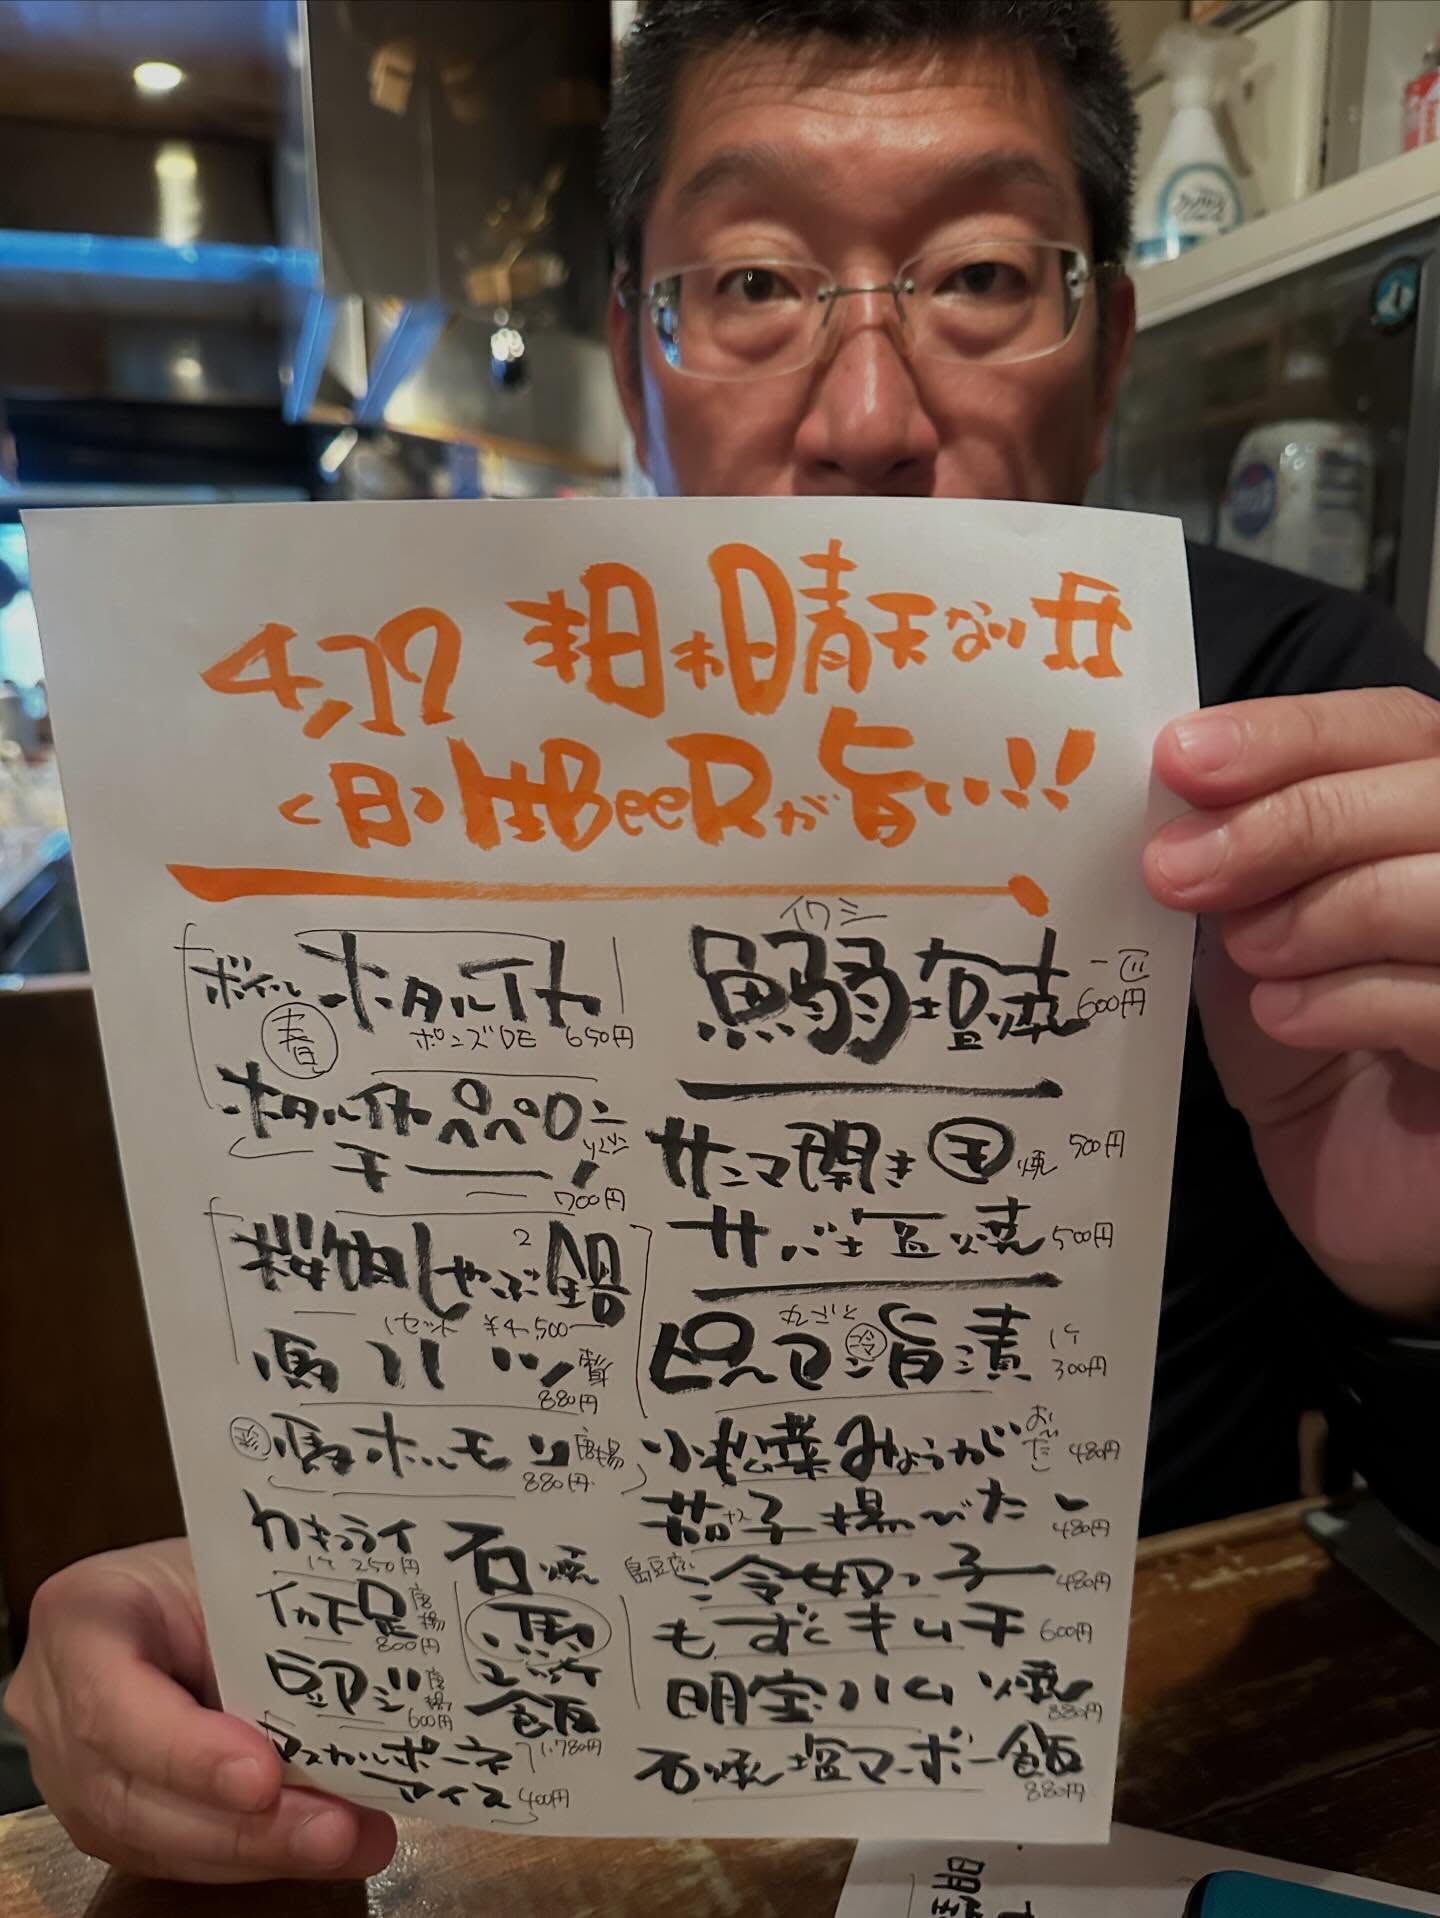 4.17 本日も晴天なり
<日> 生BeeRが旨い!!
ボイルホタルイカ
春
ポンズDE 650円
ホタルイカペペロン
チーノ
700円
桜肉しゃぶ鍋
1セット ¥4,500
馬ハツ刺
880円
馬ホルモン唐揚
880円
カキフライ
1ケ 250円
イカ下足唐揚
800円
豆アジ唐揚
600円
マスカルポーネ
アイス 400円
石焼
馬
飯
1,780円
イワシ
鰯塩焼
600円
サンマ開き 焼 500円
サバ塩焼 500円
ピーマン旨漬
冷
1ケ
300円
小松菜みょうがおひたし 480円
茄子揚びたし
ナス
480円
島豆腐
冷奴っ子 480円
もずくキムチ 600円
明宝ハム焼
880円
石焼塩マーボー飯
880円